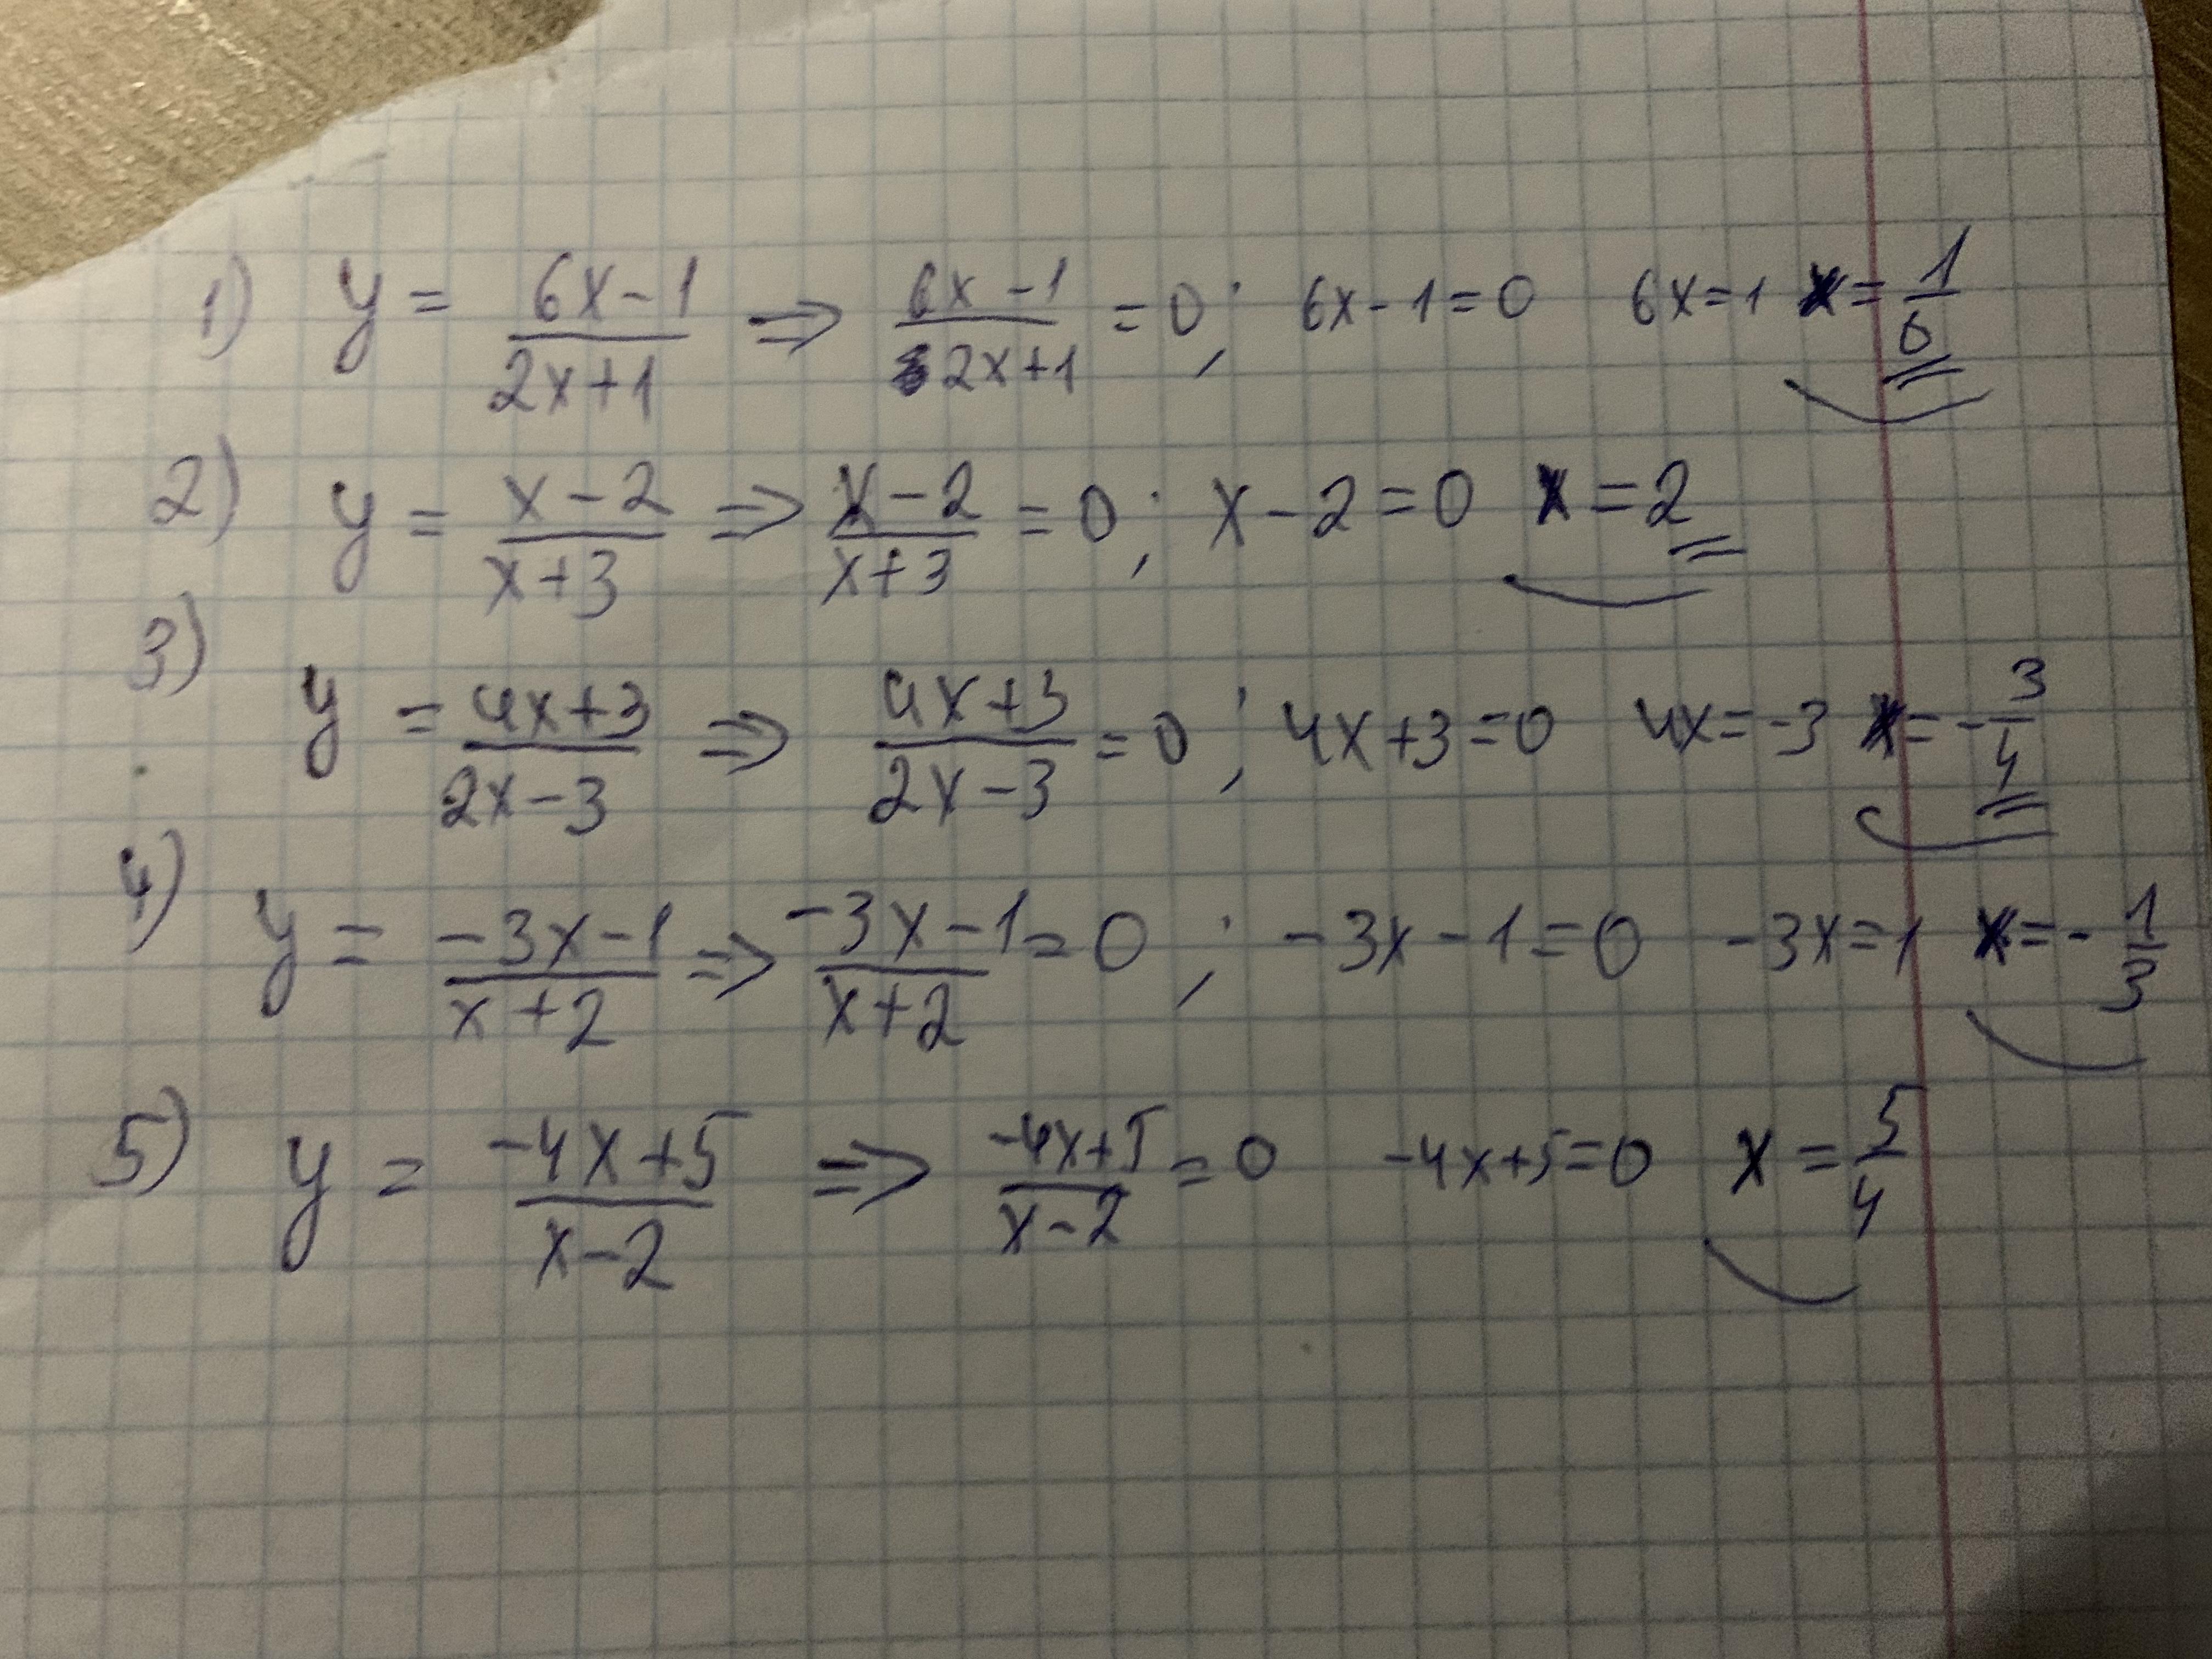 1) y = (6x-1)/(2x+1) => (6x-1)/(2x+1) = 0; 6x-1=0 6x=1 x=1/6
2) y = (x-2)/(x+3) => (x-2)/(x+3) = 0; x-2=0 x=2
3) y = (4x+3)/(2x-3) => (4x+3)/(2x-3) = 0; 4x+3=0 4x=-3 x=-3/4
4) y = (-3x-1)/(x+2) => (-3x-1)/(x+2) = 0; -3x-1=0 -3x=1 x=-1/3
5) y = (-4x+5)/(x-2) => (-4x+5)/(x-2) = 0 -4x+5=0 x=5/4